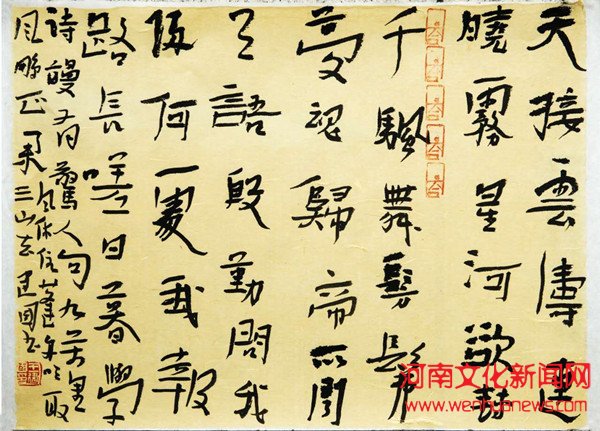 天接雲濤連
曉霧星河欲轉
千颿舞髣髴
夢魂歸帝所聞
天語殷勤問我
歸何處我報
路長嗟日暮學
詩謾有驚人句九萬里
風鵬正舉
風休住蓬舟吹取
三山去建國書
河南文化新闻网
www.wenhuanews.com